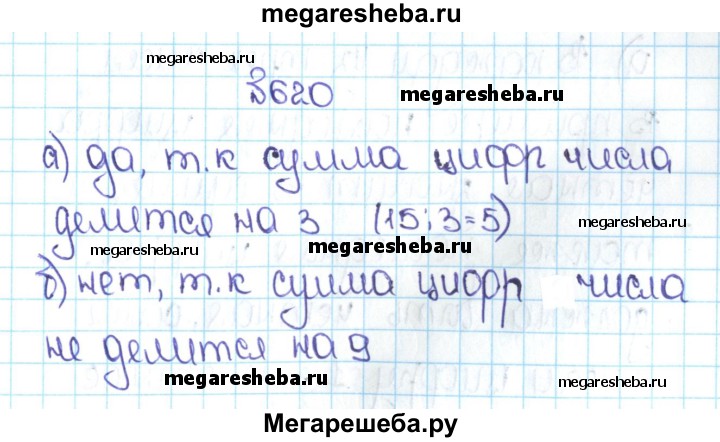 megaresheba.ru
megaresheba.ru
№620
megaresheba.ru
а) да, т.к сумма цифр числа
делится на 3 (15:3=5)
megaresheba.ru
megaresheba.ru
б) нет, т.к сумма цифр числа
не делится на 9
megaresheba.ru
megaresheba.ru
Мегарешеба.ру